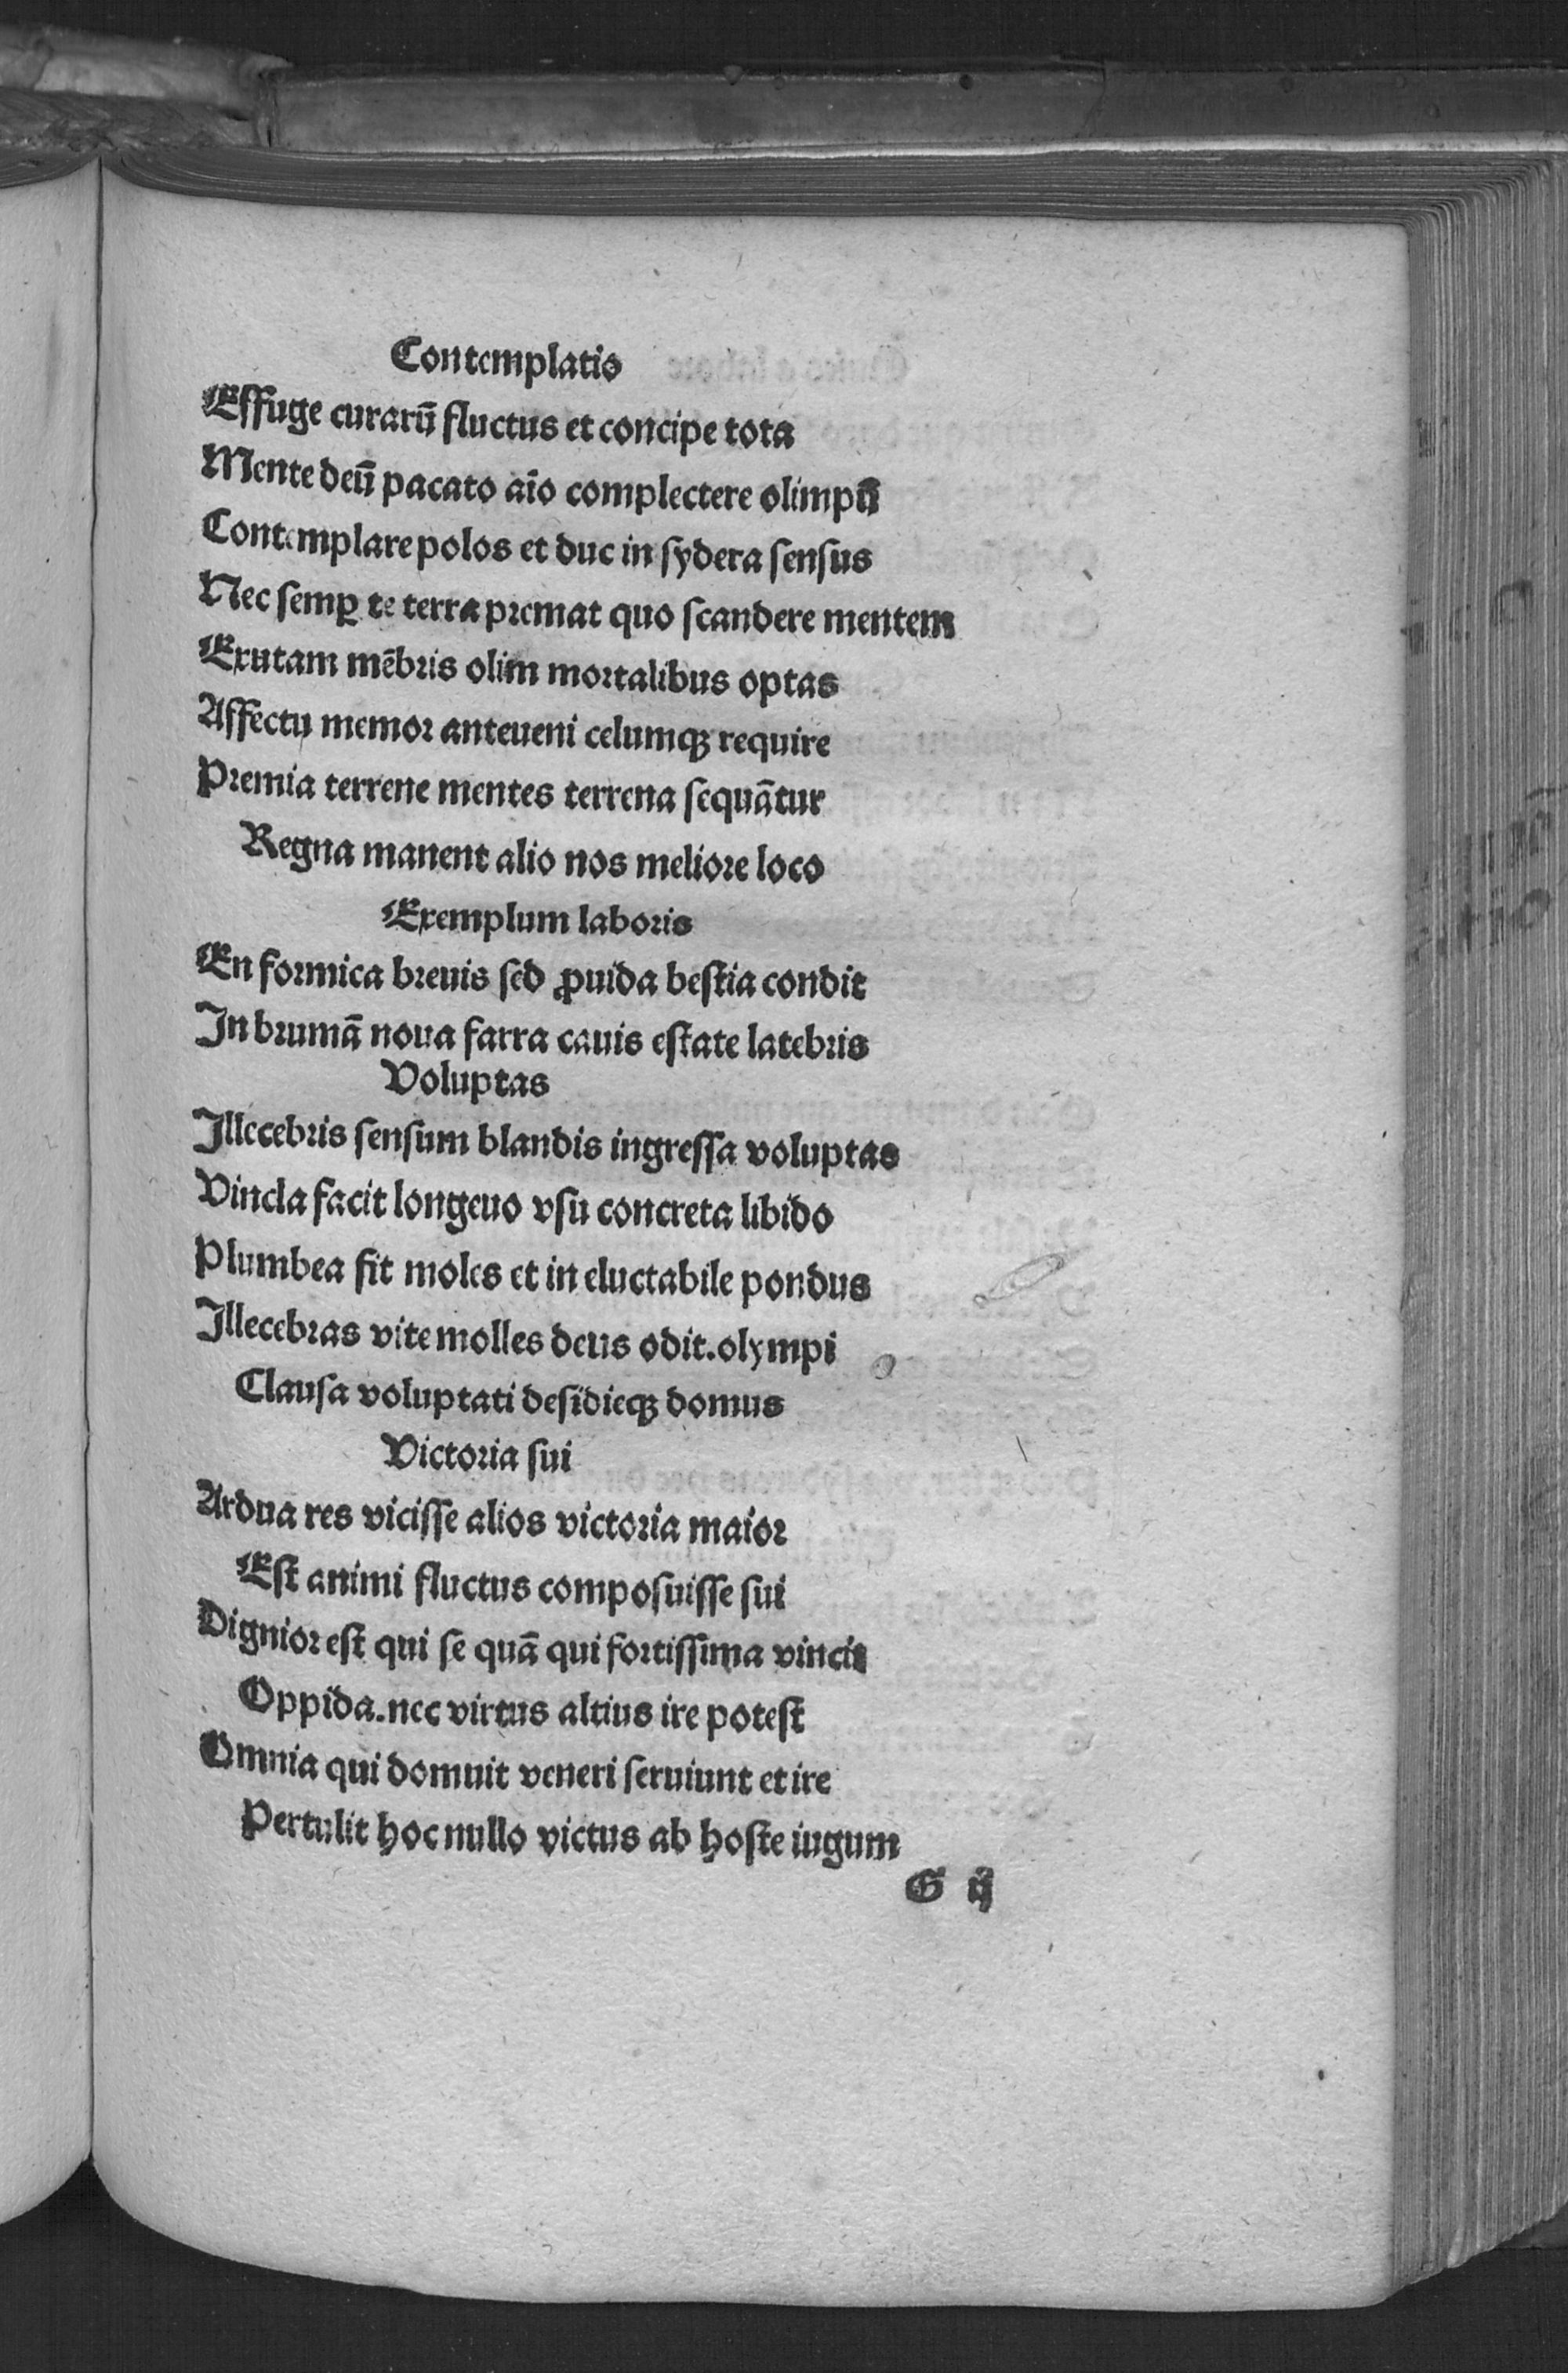 Contemplatio
Effuge curarū fluctus et concipe tota
Mente deū pacato aīo complectere olimpū
Contemplare polos et duc in sydera sensus
Nec semꝑ te terra premat quo scandere mentem
Exutam mēbris olim mortalibus optas
Affectu memor anteueni celumqꝫ require
Premia terrene mentes terrena sequātur
Regna manent alio nos meliore loco
Exemplum laboris
En formica breuis sed ꝓuida bestia condit
In brumā noua farra cauis estate latebris
Voluptas
Illecebris sensum blandis ingressa voluptas
Vincla facit longeuo vsu concreta libido
Plumbea fit moles et in eluctabile pondus
Illecebras vite molles deus odit. olympi
Clausa voluptati desidieqꝫ domus
Victoria sui
Ardua res vicisse alios victoria maior
Est animi fluctus composuisse sui
Dignior est qui se quā qui fortissima vincit
Oppida. nec virtus altius ire potest
Omnia qui domuit veneri seruiunt et ire
Pertulit hoc nullo victus ab hoste iugum
G ij